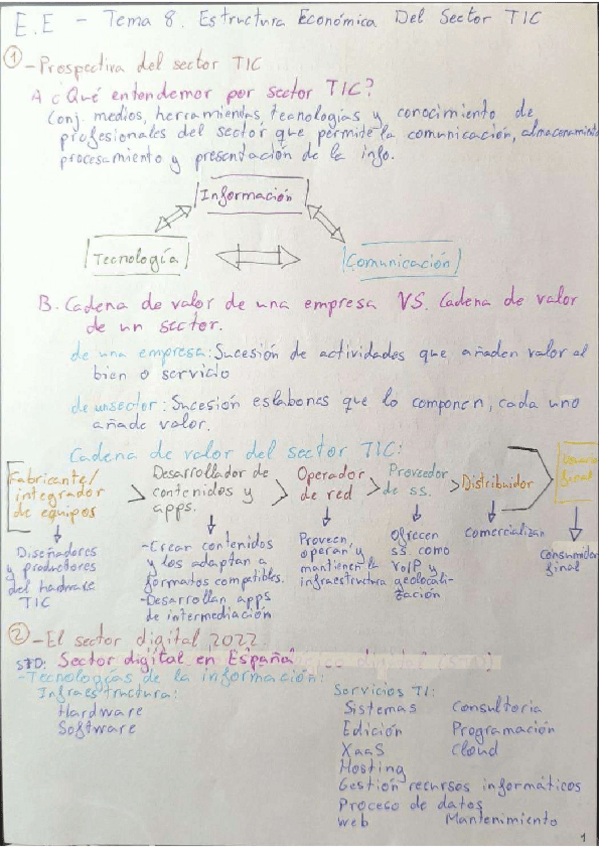 E.E - Tema 8. Estructura Económica Del Sector TIC
① - Prospectiva del sector TIC
A ¿Qué entendemor por sector TIC?
Conj. medios, herramientas, tecnologías y conocimiento de
profesionales del sector que permite la comunicación, almacenamiento
procesamiento y presentación de la info.
Información
Tecnología
Comunicación
B. Cadena de valor de una empresa VS. Cadena de valor
de un sector.
de una empresa: Sucesión de actividades que añaden valor al
bien o servicio
de un sector: Sucesión eslabones que lo componen, cada uno
añade valor.
Cadena de valor del sector TIC:
Fabricante/
integrador
de equipos
>
Desarrollador de
contenidos y
apps.
>
Operador
de red
>
Proveedor
de ss.
>
Distribuidor
Usuario
final
Diseñadores
y productores
del hardware
TIC
-Crear contenidos
y los adaptan a
formatos compatibles.
-Desarrollan apps
de intermediación
Proveen,
operan y
mantienen la
infraestructura
Ofrecen
ss. como
VoIP y
geolocali-
zación
Comercializan
Consumidor
final
② - El sector digital 2022
STD: Sector digital en España
-Tecnologías de la información:
Infraestructura:
Hardware
Software
Servicios TI:
Sistemas Consultoria
Edición Programación
XaaS Cloud
Hosting
Gestión recursos informáticos
Proceso de datos
web Mantenimiento
1